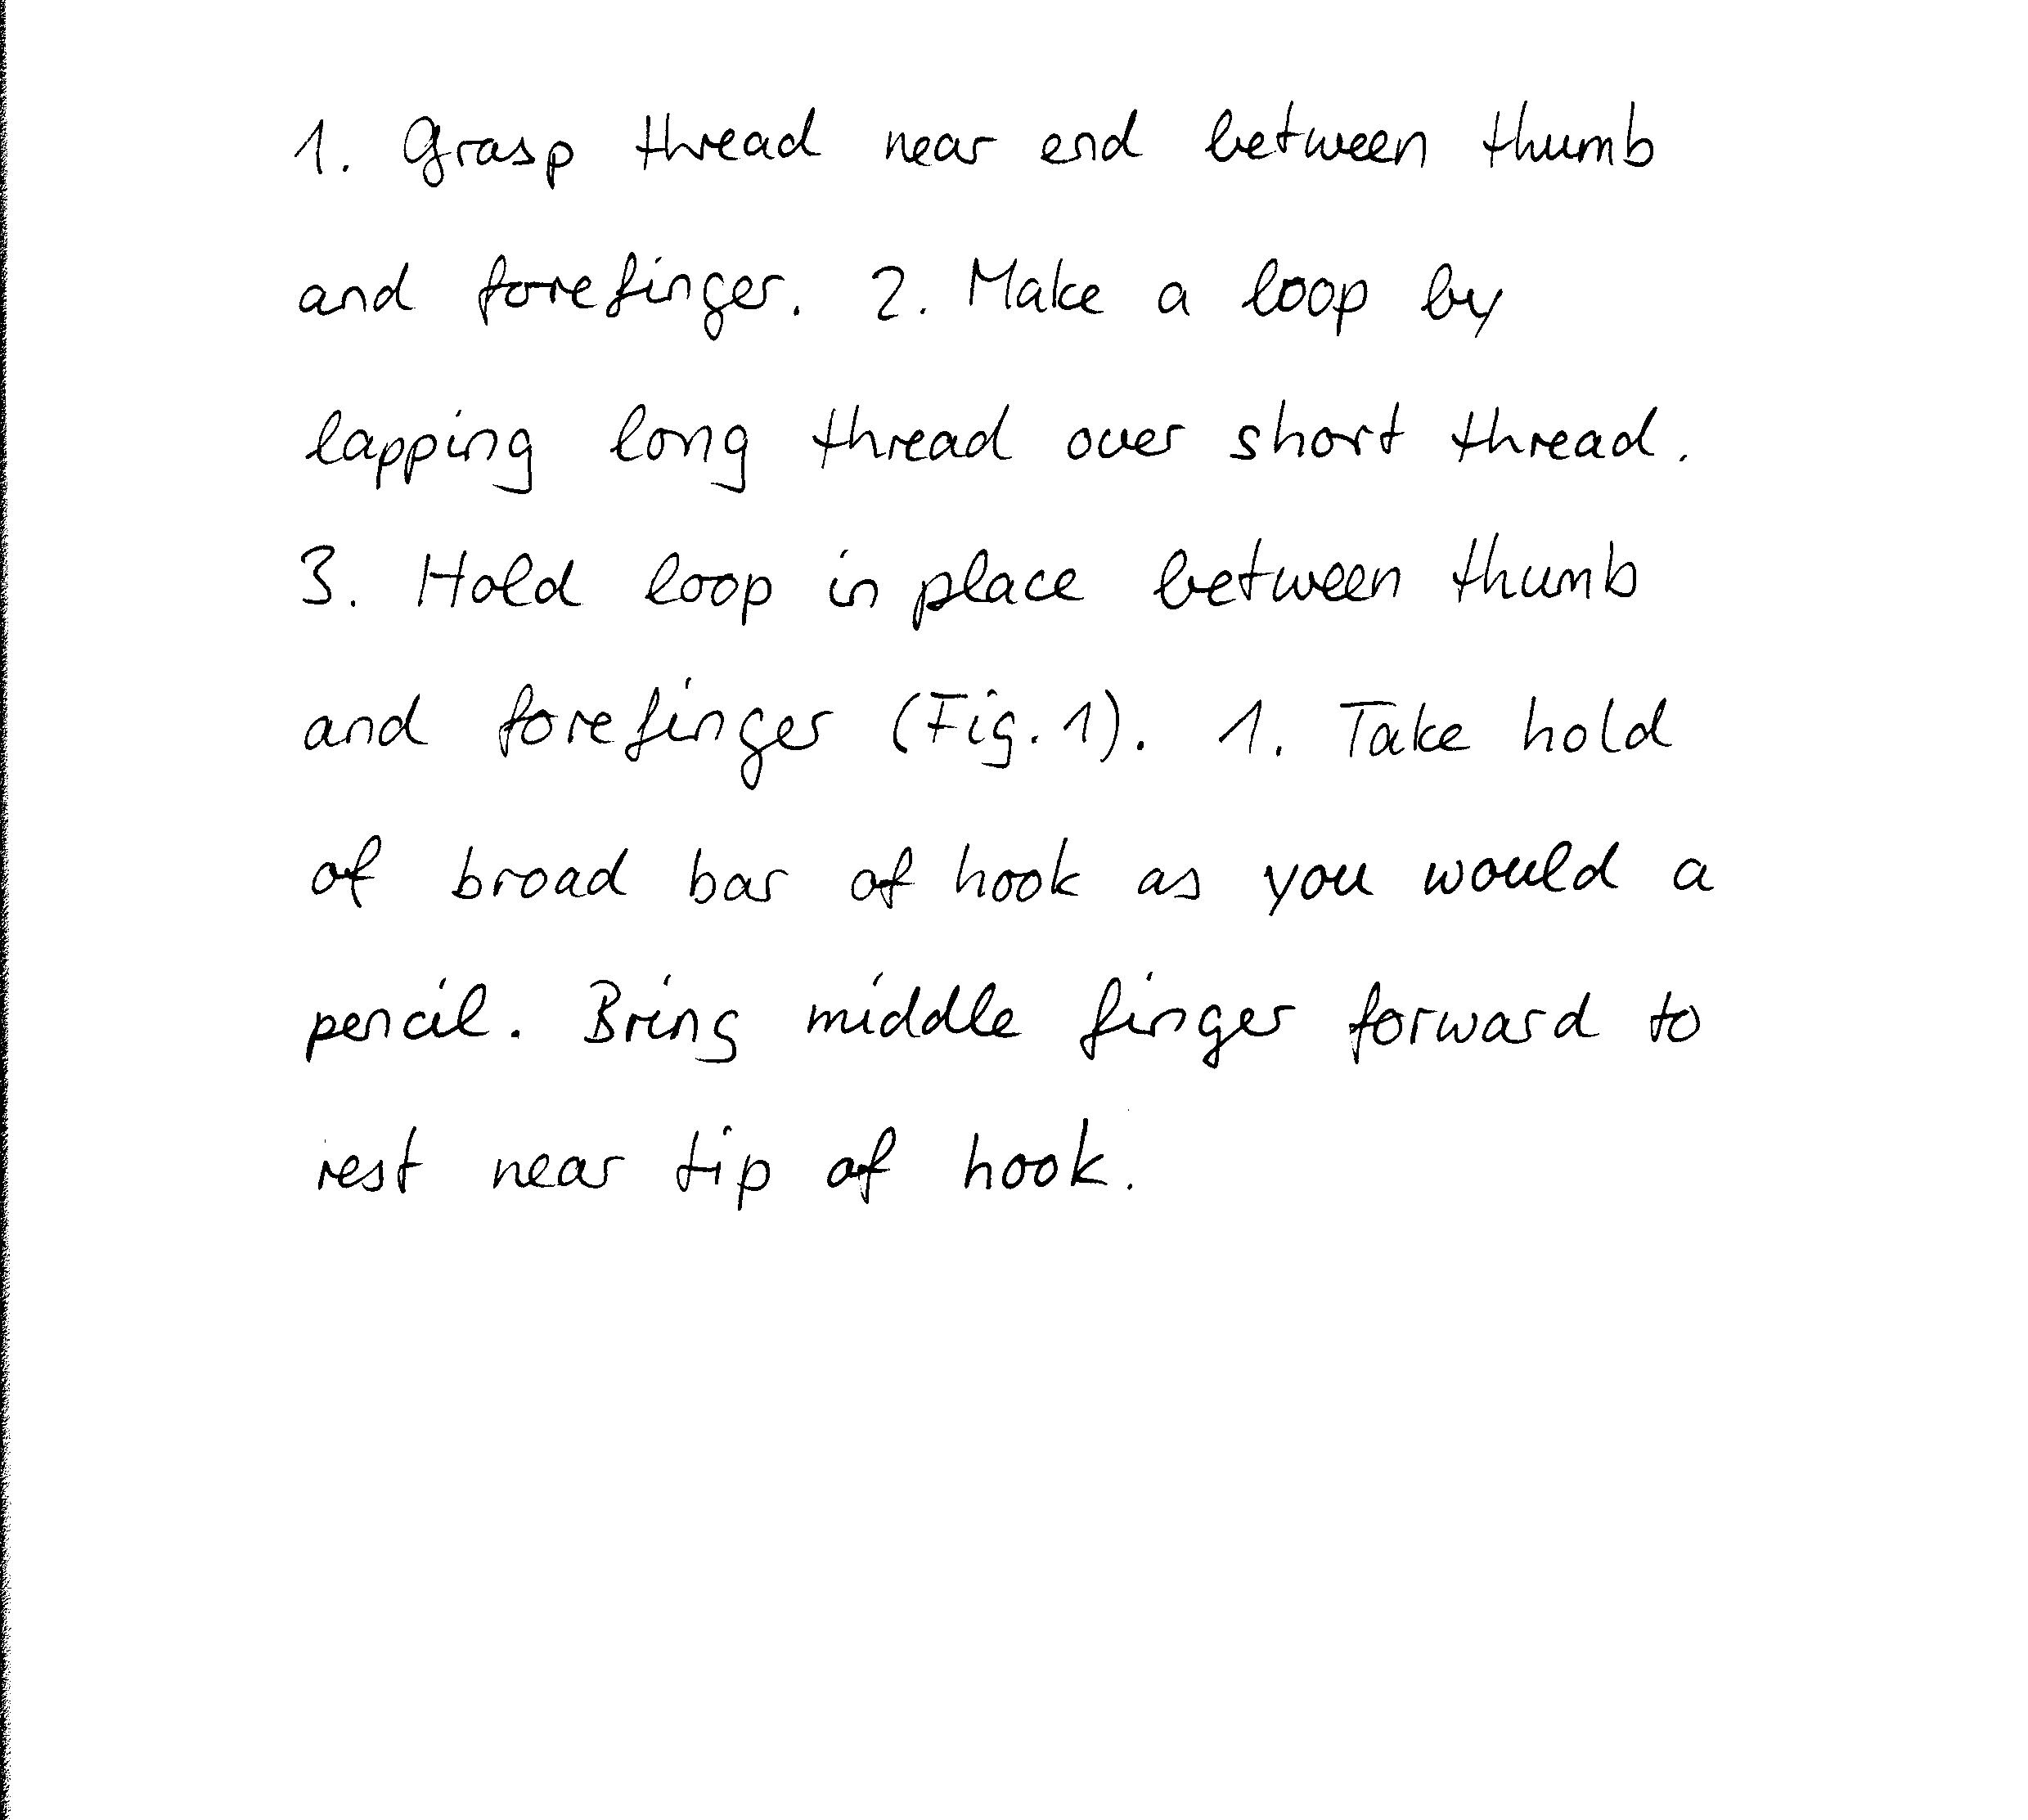 1. Grasp thread near end between thumb
and forefinger. 2. Make a loop by
lapping long thread over short thread.
3. Hold loop in place between thumb
and forefinger (Fig. 1). 1. Take hold
of broad bar of hook as you would a
pencil. Bring middle finger forward to
rest near tip of hook.